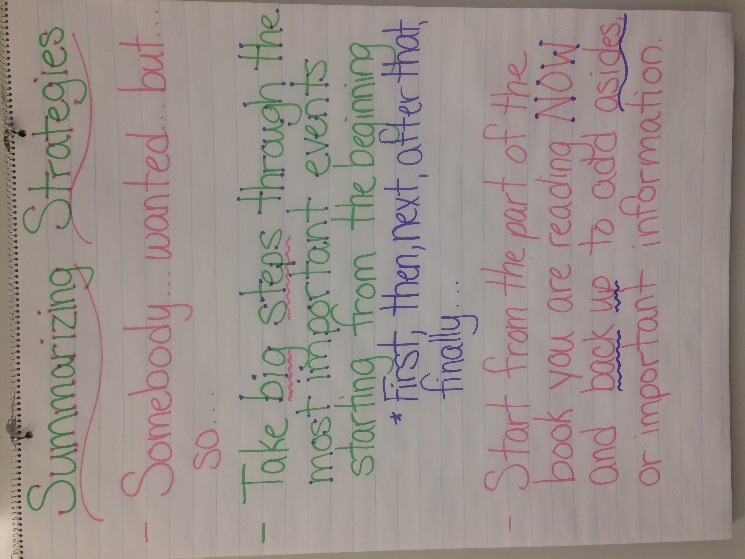 Summarizing Strategies
- Somebody... wanted... but...
so...
- Take big steps through the
most important events
starting from the beginning
* First, then, next, after that,
finally...
- Start from the part of the
book you are reading NOW
and back up to add asides
or important information.